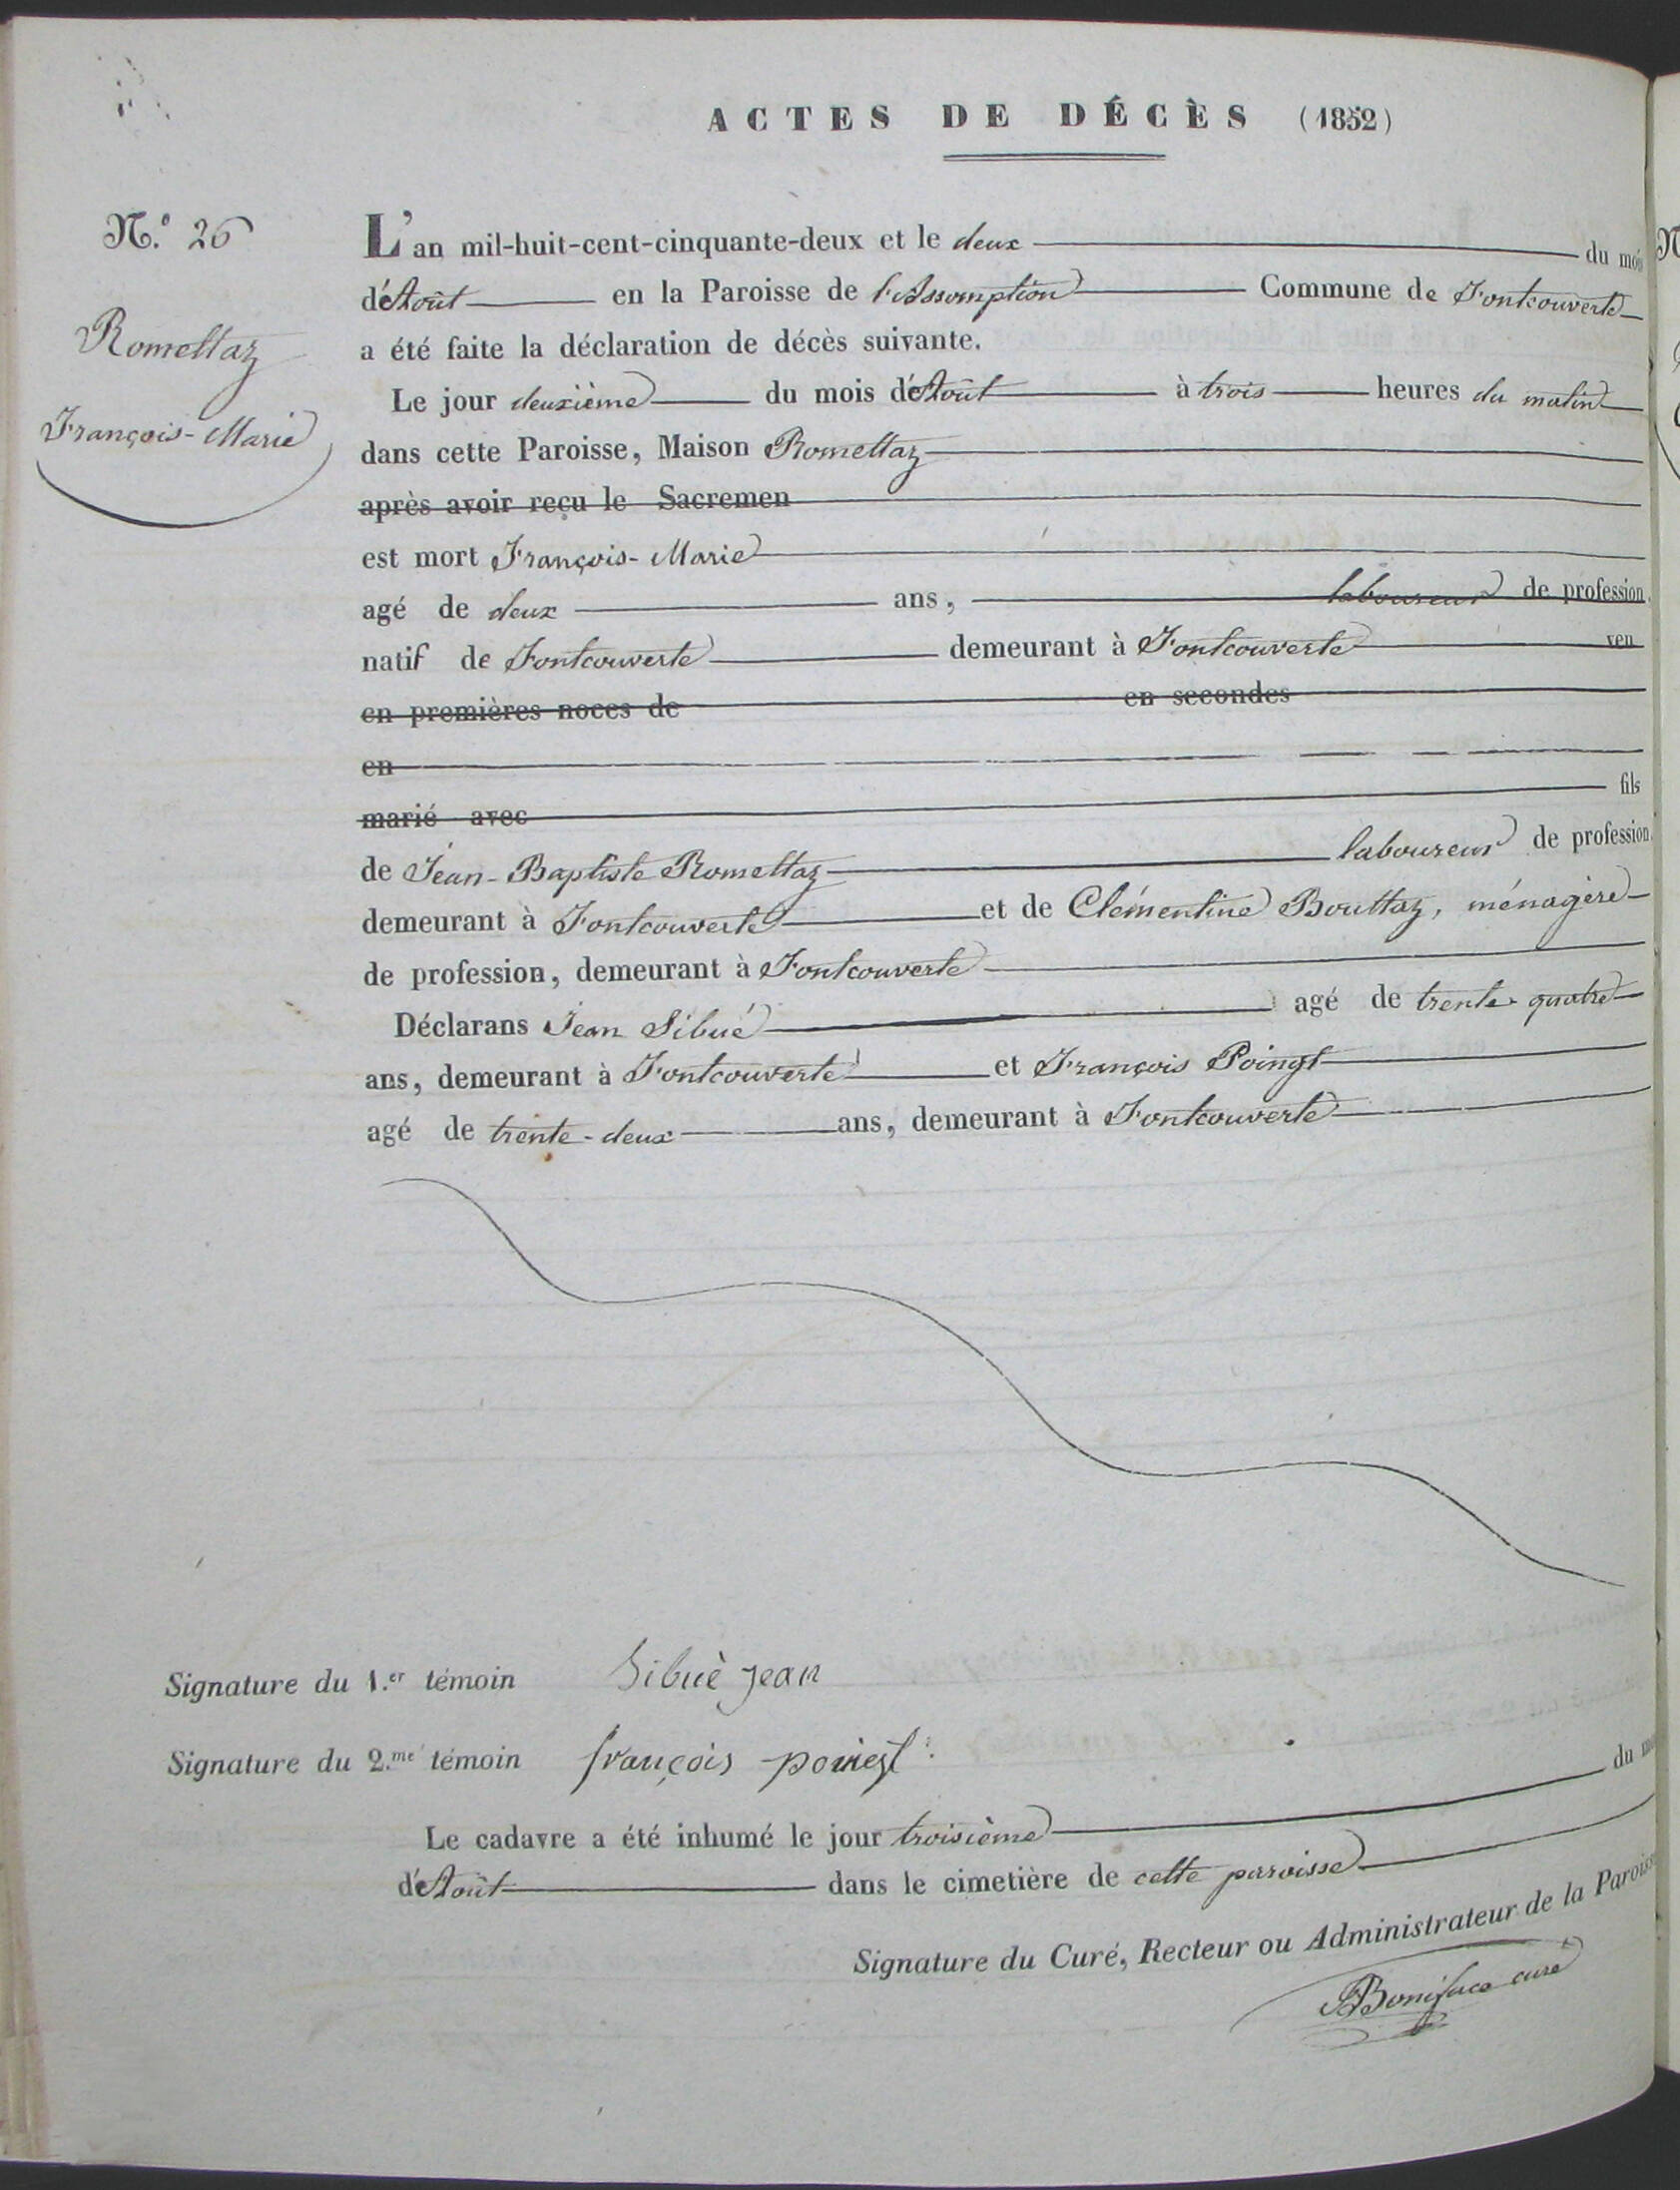 ACTES DE DÉCÈS (1852)
N.o 26
Romettaz
François-Marie
L'an mil-huit-cent-cinquante-deux et le deux du mois
d'Août en la Paroisse de l'Assomption Commune de Fontcouverte
a été faite la déclaration de décès suivante.
Le jour deuxième du mois d'Août à trois heures du matin
dans cette Paroisse, Maison Romettaz
après avoir reçu le Sacremen
est mort François-Marie
agé de deux ans, laboureur de profession,
natif de Fontcouverte demeurant à Fontcouverte veu
en premières noces de en secondes
en
marié avec fils
de Jean-Baptiste Romettaz laboureur de profession,
demeurant à Fontcouverte et de Clémentine Bouttaz, ménagère
de profession, demeurant à Fontcouverte
Déclarans Jean Sibué agé de trente-quatre
ans, demeurant à Fontcouverte et François Poingt
agé de trente-deux ans, demeurant à Fontcouverte
Signature du 1.er témoin Sibuè jean
Signature du 2.me témoin françois poingt
Le cadavre a été inhumé le jour troisième du m
d'Août dans le cimetière de cette paroisse
Signature du Curé, Recteur ou Administrateur de la Paroisse
Boniface curé